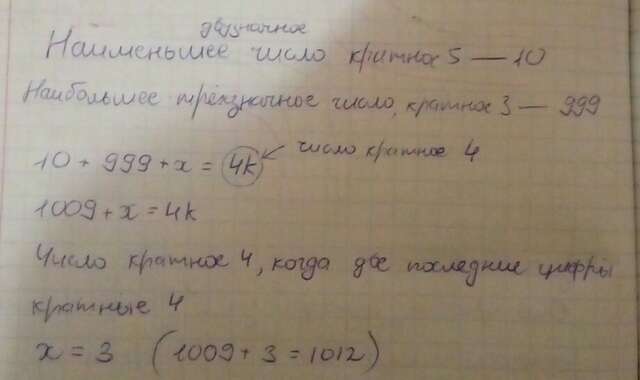 двузначное
Наименьшее число кратное 5 — 10
Наибольшее трёхзначное число, кратное 3 — 999
10 + 999 + x = 4k ← число кратное 4
1009 + x = 4k
Число кратное 4, когда две последние цифры
кратные 4
x = 3 (1009 + 3 = 1012)